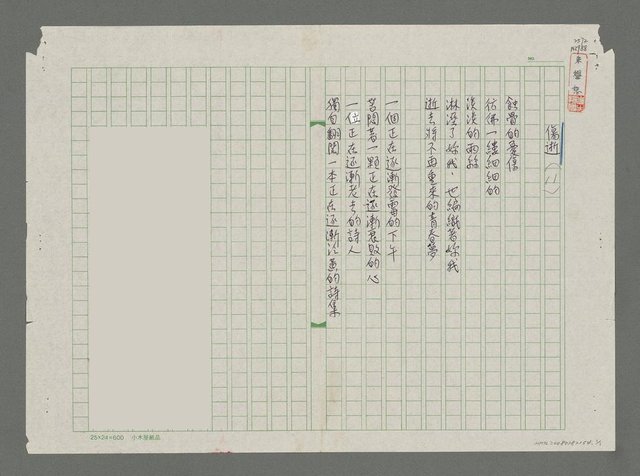 NO.
傷逝(1)
蝕骨的憂傷
彷彿一縷細細的
淡淡的雨絲
淋溼了妳我,也編織著妳我
逝去將不再重來的青春夢
一個正在逐漸發霉的下午
苦悶著一顆正在逐漸衰敗的心
一位正在逐漸老去的詩人
獨自翻閱一本正在逐漸泛黃的詩集
25×24=600 小木屋紙品